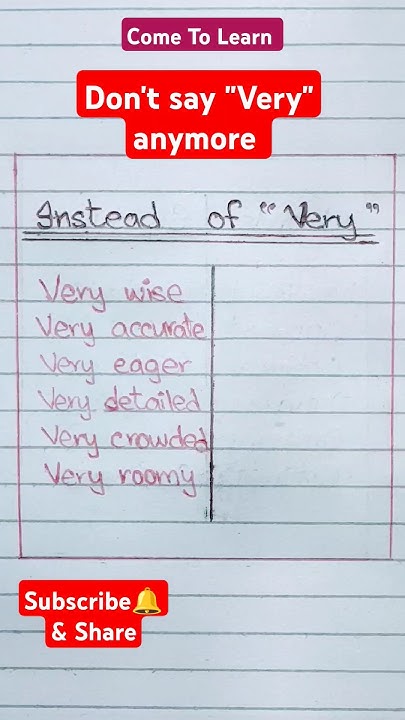 Come To Learn
Don't say "Very"
anymore
Instead of "Very"
Very wise
Very accurate
Very eager
Very detailed
Very crowded
Very roomy
Subscribe🔔
& Share